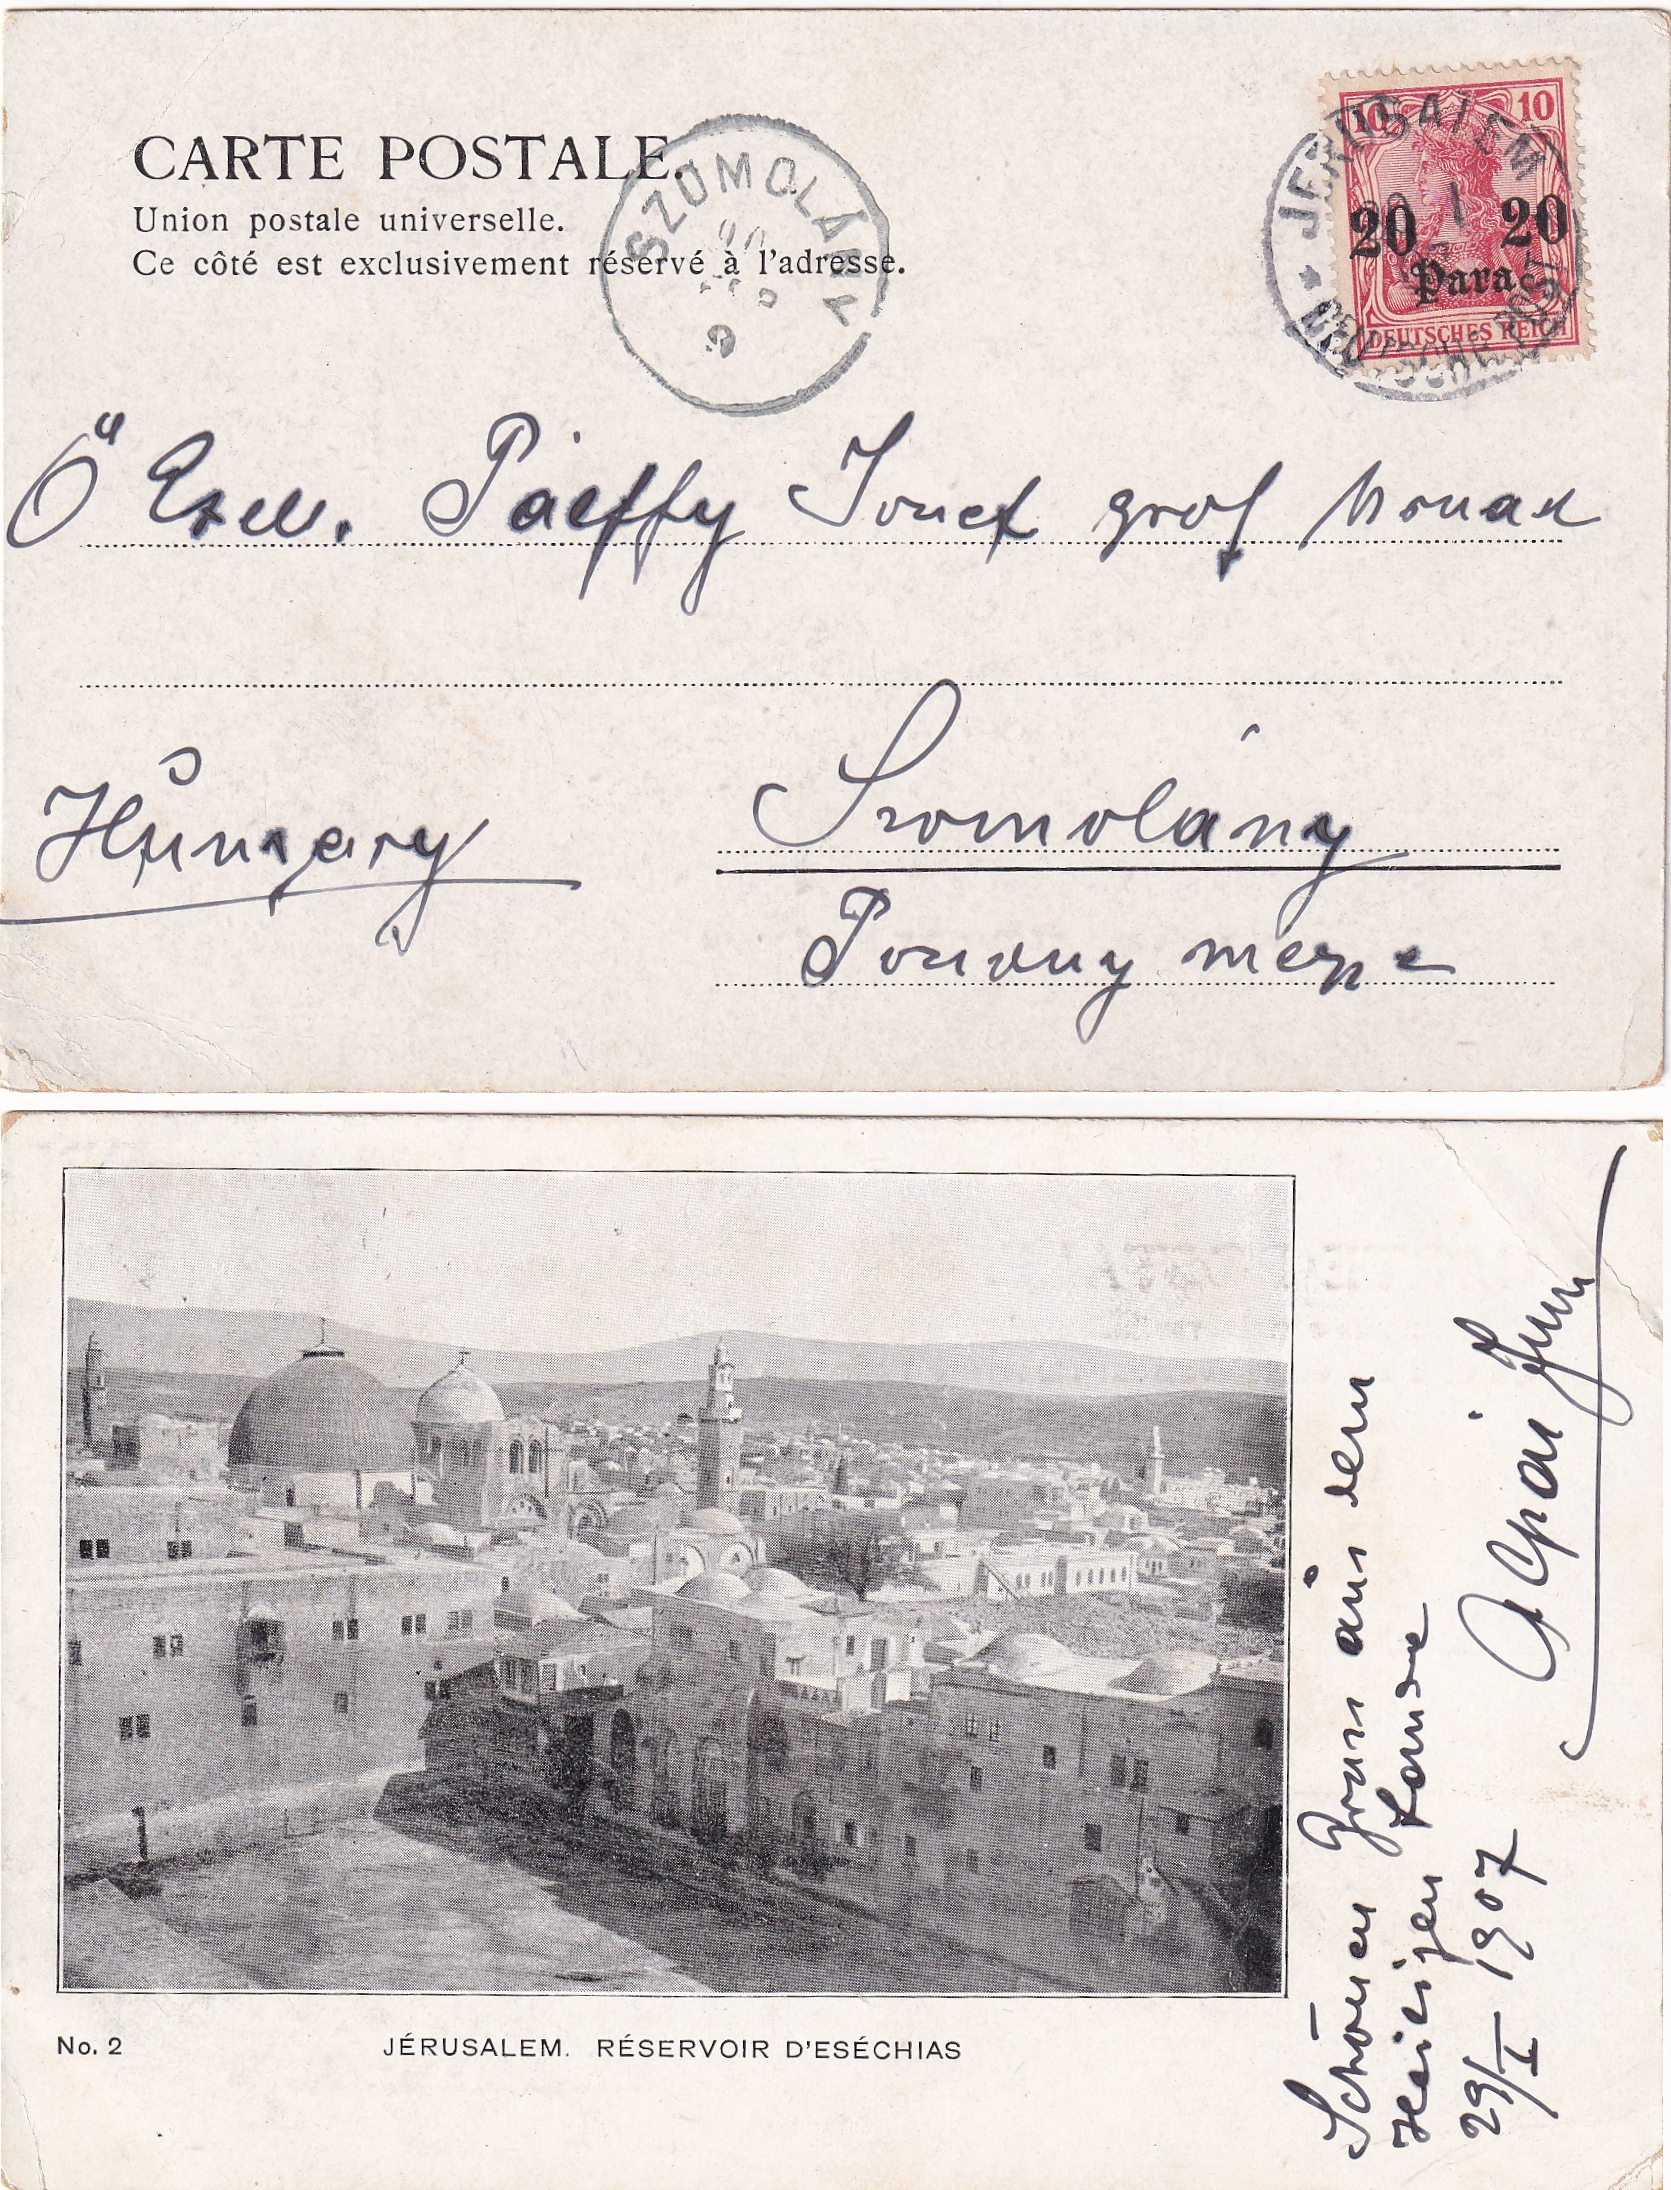 CARTE POSTALE.
Union postale universelle.
Ce côté est exclusivement réservé à l'adresse.
SZOMOLÁNY
JERUSALEM
DEUTSCHE POST
10 10
20 20
Para
DEUTSCHES REICH
Ő Exell. Pálffy József gróf úrnak
Szomolány
Hungary
Pozsony megye
No. 2
JÉRUSALEM. RÉSERVOIR D'ESÉCHIAS
Schönen Gruss aus dem
Heiligen Lande
29/I 1907